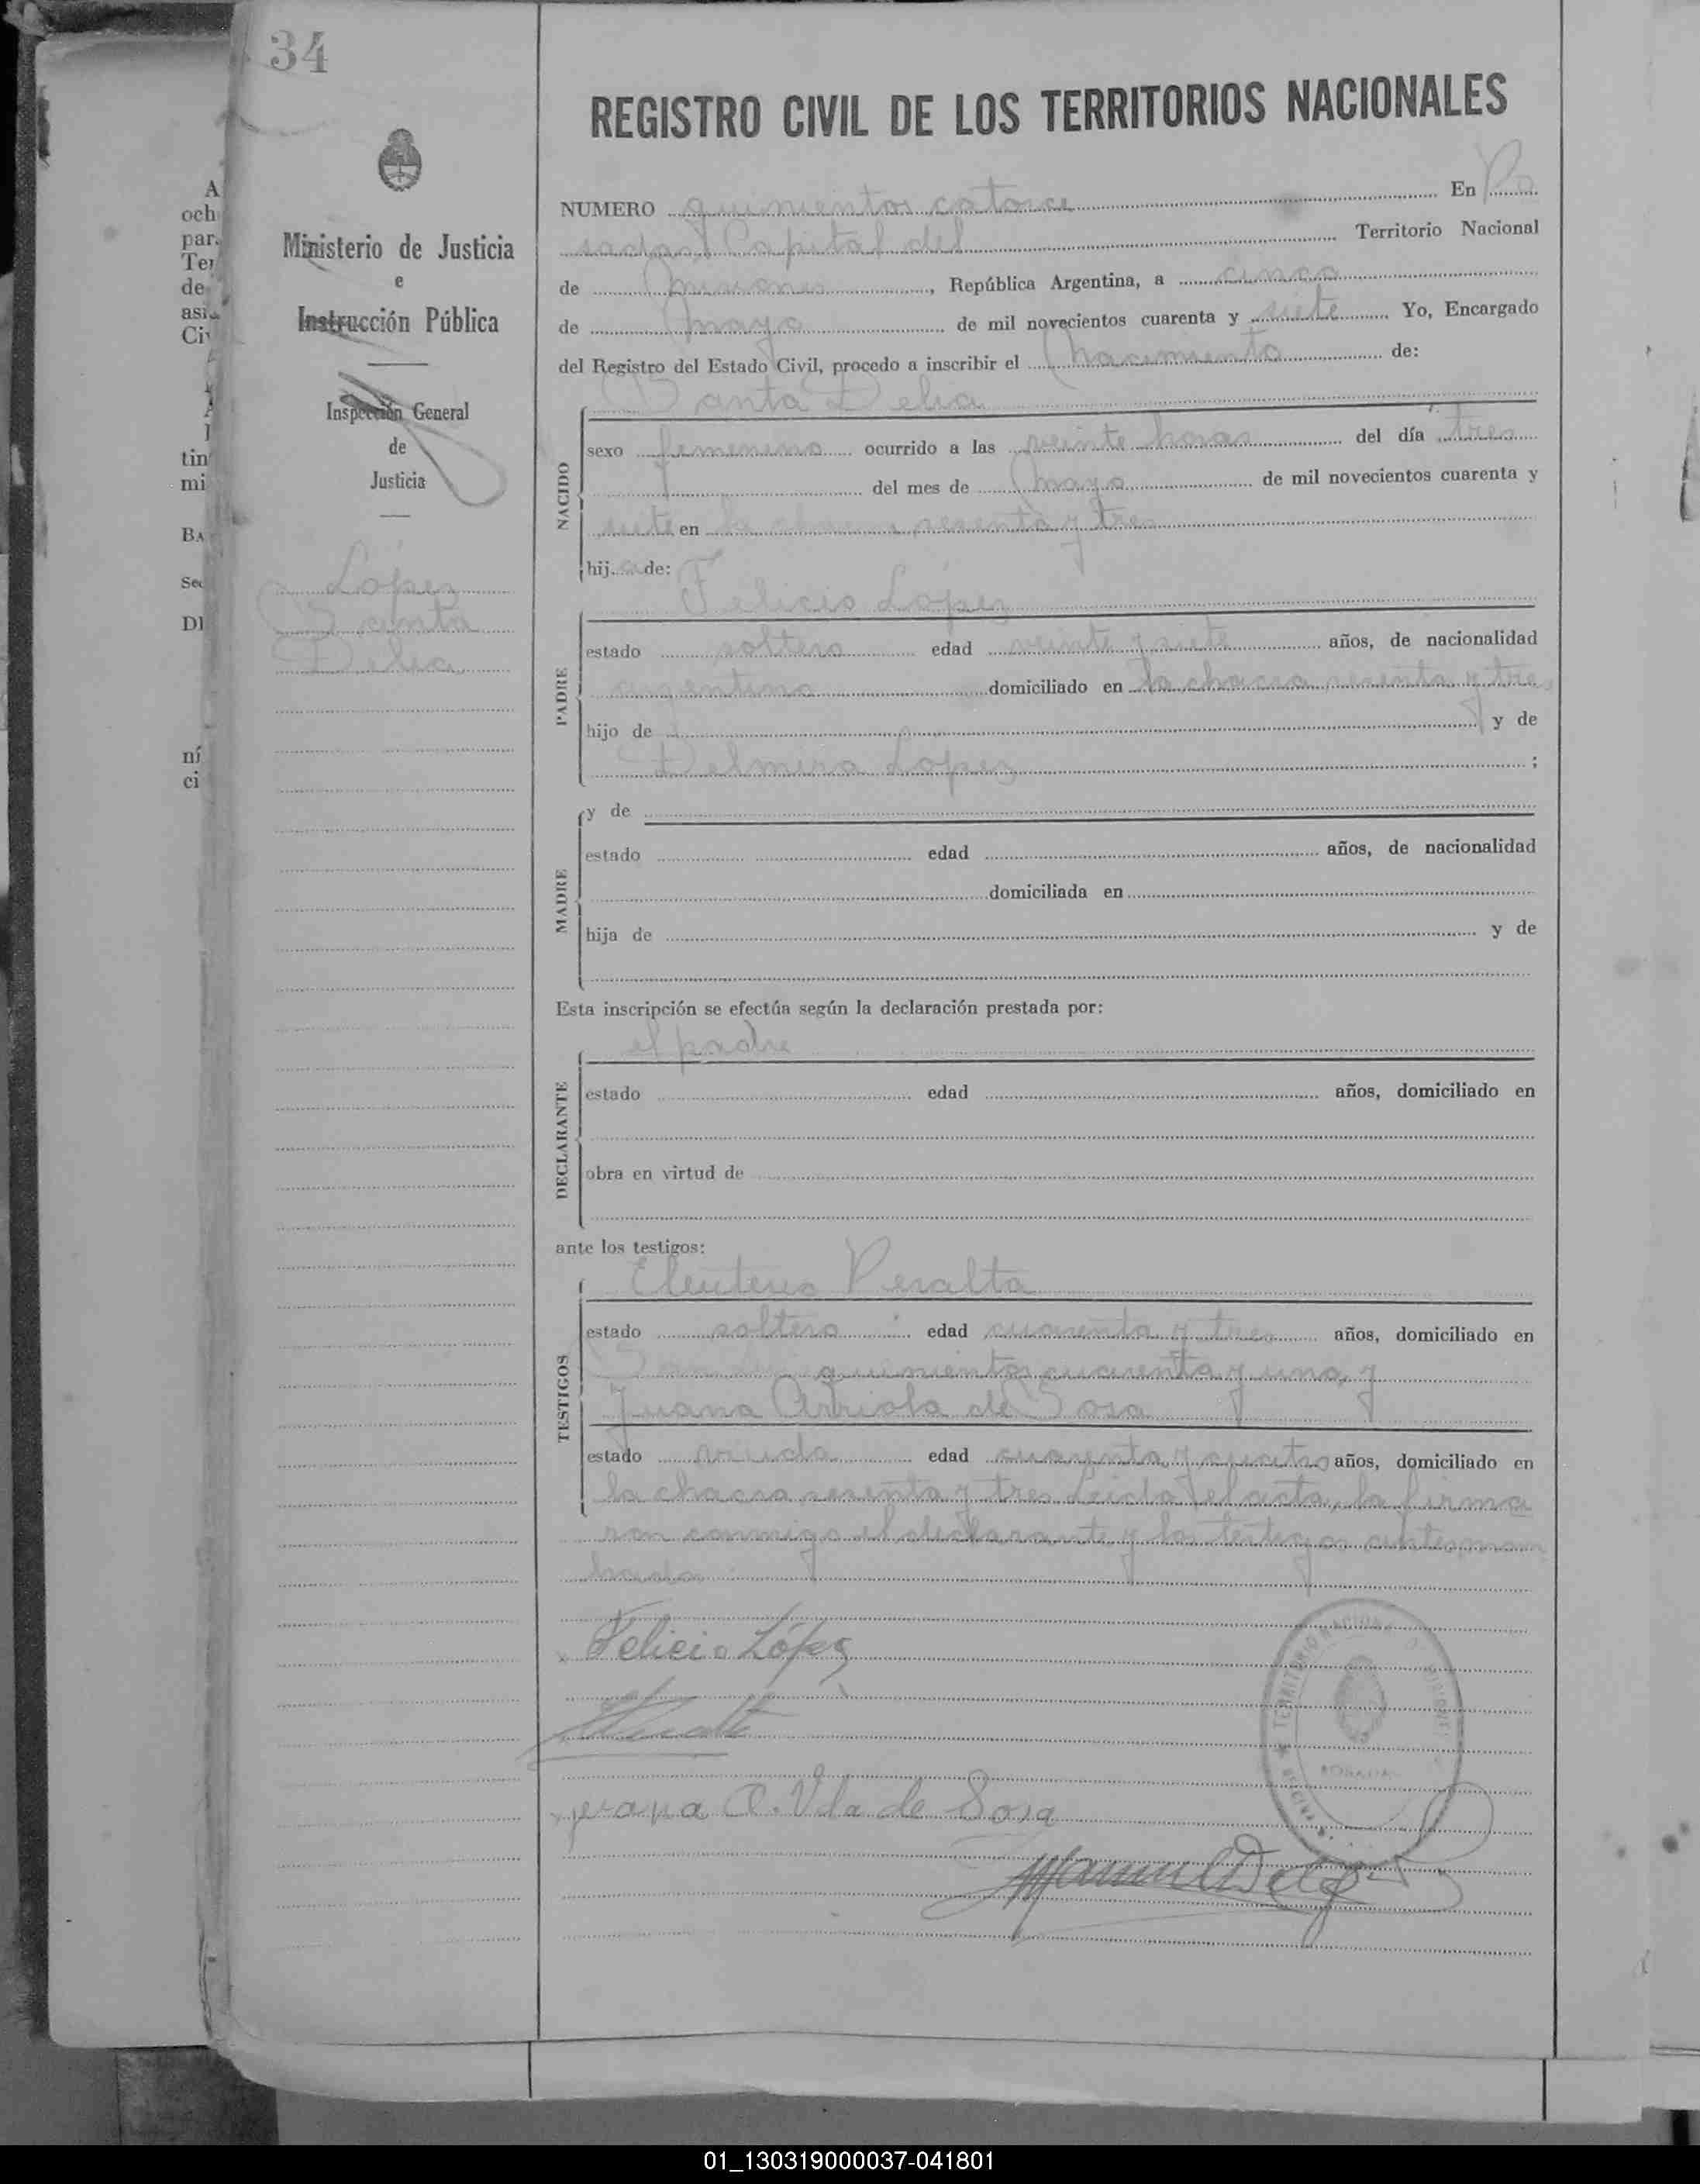 34
REGISTRO CIVIL DE LOS TERRITORIOS NACIONALES
Ministerio de Justicia
e
Instrucción Pública
Inspección General
de
Justicia
López
Santa
Delia
A
och
par
Ter
de
asi
Ci
tin
mi
BA
Sec
DI
ní
ci
NUMERO quinientos catorce En Po
sadas, Capital del Territorio Nacional
de Misiones, República Argentina, a cinco
de mayo de mil novecientos cuarenta y siete Yo, Encargado
del Registro del Estado Civil, procedo a inscribir el nacimiento de:
Santa Delia
NACIDO
sexo femenino ocurrido a las veinte horas del día tres
del mes de mayo de mil novecientos cuarenta y
siete en la chacra sesenta y tres
hija de:
Felicio López
PADRE
estado soltero edad veinte y siete años, de nacionalidad
argentina domiciliado en la chacra sesenta y tres
hijo de y de
Delmira López ;
MADRE
y de
estado edad años, de nacionalidad
domiciliada en
hija de y de
Esta inscripción se efectúa según la declaración prestada por:
el padre
DECLARANTE
estado edad años, domiciliado en
obra en virtud de
ante los testigos:
TESTIGOS
Eleuterio Peralta
estado soltero edad cuarenta y tres años, domiciliado en
quinientos cuarenta y uno, y
Juana Arriola de Sosa
estado viuda edad cuarenta y cuatro años, domiciliado en
la chacra sesenta y tres Leida el acta, la firma
ron conmigo el declarante y los testigos
Felicio López
Juana A. Vda de Sosa
TERRITORIO NACIONAL DE MISIONES
POSADAS
01_130319000037-041801